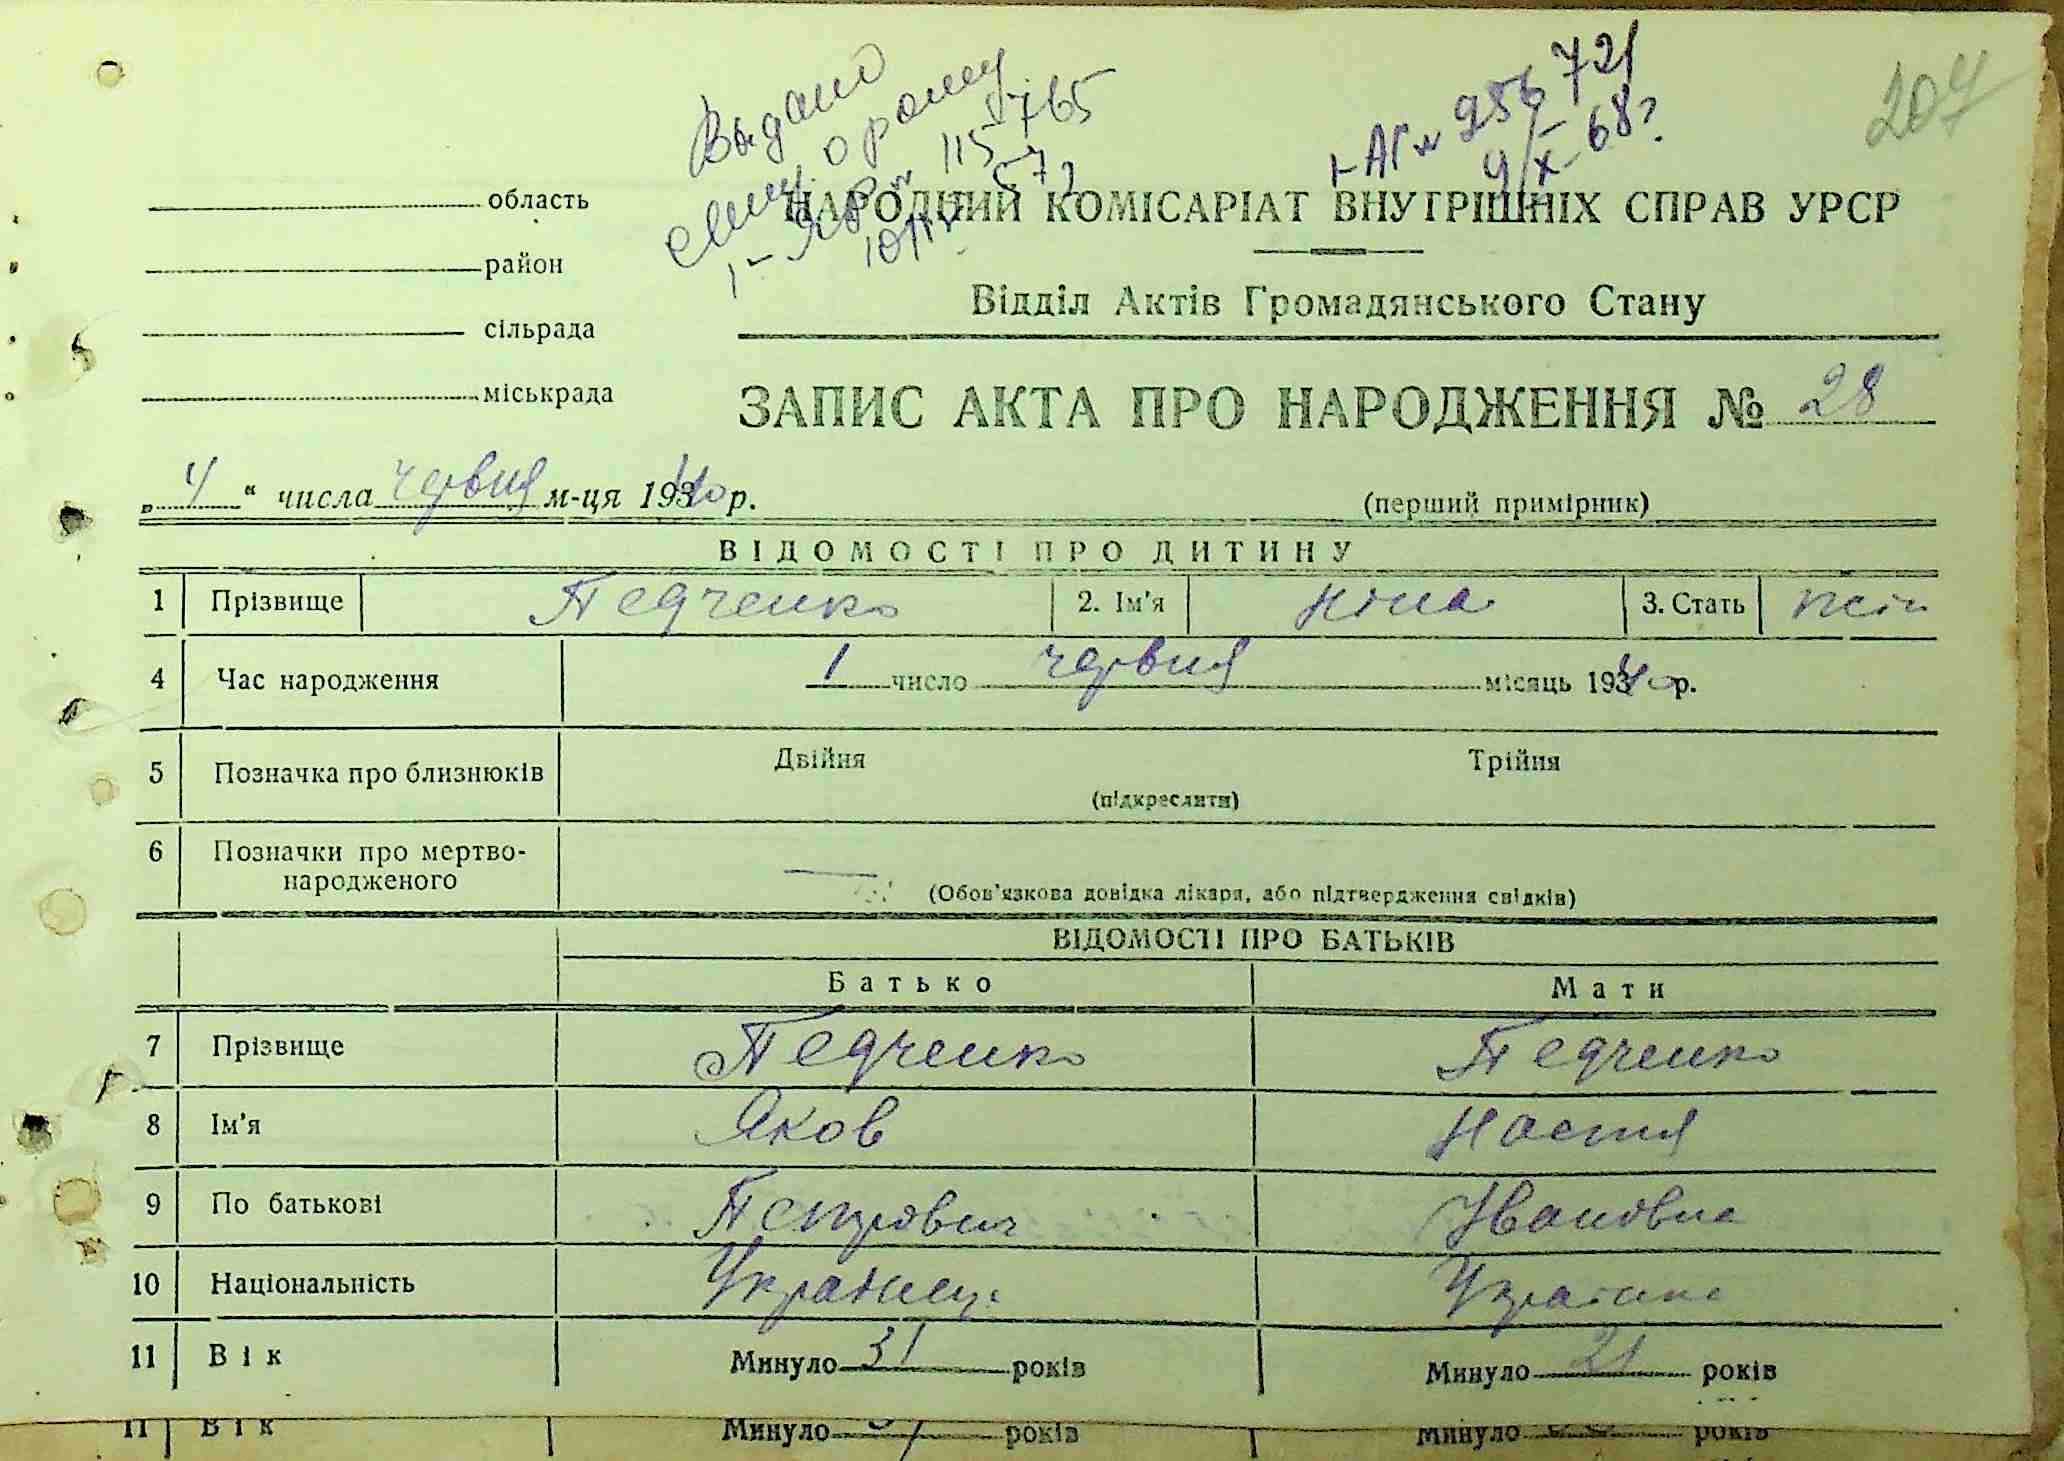 207
Выдано
115765
256721
9/X-68г.
область
район
сільрада
міськрада
НАРОДНИЙ КОМІСАРІАТ ВНУТРІШНІХ СПРАВ УРСР
Відділ Актів Громадянського Стану
ЗАПИС АКТА ПРО НАРОДЖЕННЯ № 28
„4“ числа червня м-ця 1940 р.
(перший примірник)
ВІДОМОСТІ ПРО ДИТИНУ
1 Прізвище Педченко 2. Ім'я Ніна 3. Стать жін
4 Час народження 1 число червня місяць 1940 р.
5 Позначка про близнюків Двійня Трійня
(підкреслити)
6 Позначки про мертво-
народженого
(Обов'язкова довідка лікаря, або підтвердження свідків)
ВІДОМОСТІ ПРО БАТЬКІВ
Батько Мати
7 Прізвище Педченко Педченко
8 Ім'я Яков Настя
9 По батькові Петрович Ивановна
10 Національність Українець Українка
11 Вік Минуло 31 років Минуло 21 років
11 Вік Минуло років Минуло років